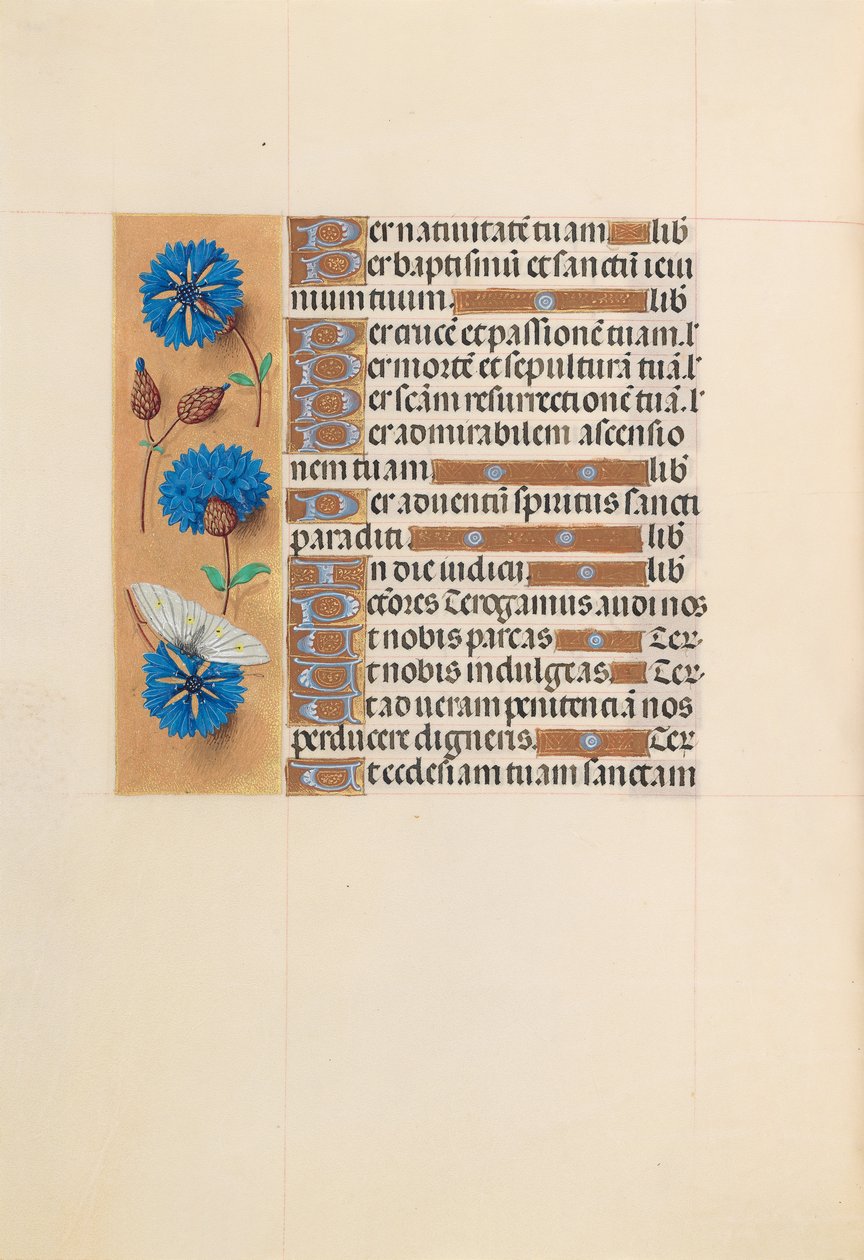 Per natiuitatē tuam lib̄
Per baptismū et sanctū ieiu
nium tuum. lib̄
Per crucē et passionē tuam. l'
Per mortē et sepulturā tuā. l'
Per scām resurrectionē tuā. l'
Per admirabilem ascensio
nem tuam. lib̄
Per aduentū spiritus sancti
paracliti. lib̄
In die iudicii. lib̄
Pctōres Te rogamus audi nos
Ut nobis parcas Te r.
Ut nobis indulgeas. Te r.
Ut ad ueram penitenciā nos
perducere digneris. Te r.
Ut ecclesiam tuam sanctam